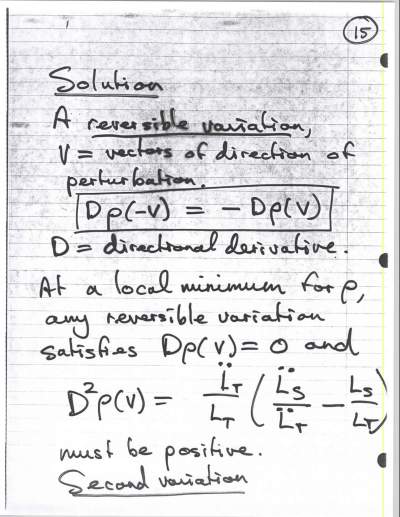 15
Solution
A reversible variation,
V = vectors of direction of
perturbation.
Dρ(-V) = - Dρ(V)
D = directional derivative.
At a local minimum for ρ,
any reversible variation
satisfies Dρ(V) = 0 and
D²ρ(V) = L̈_T / L_T ( L̈_S / L̈_T - L_S / L_T )
must be positive.
Second variation